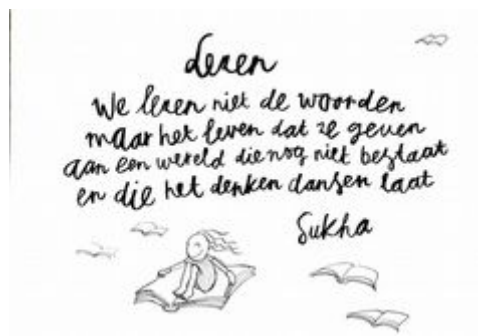 Lezen
We lezen niet de woorden
maar het leven dat ze geven
aan een wereld die nog niet bestaat
en die het denken dansen laat
Sukha